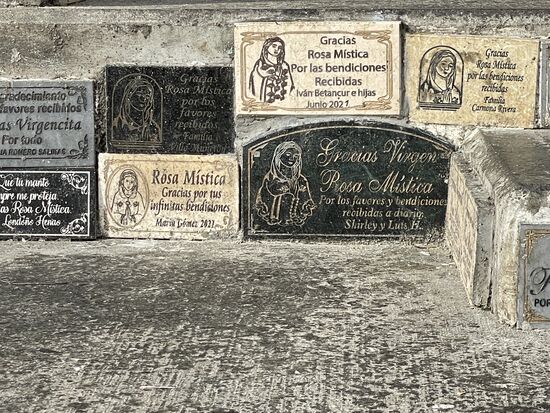 Gracias
Rosa Mística
Por las bendiciones
Recibidas
Iván Betancur e hijas
Junio 2021
Gracias
Rosa Mística
por tus bendiciones
recibidas
Familia
Carmona Rivera
Gracias
Rosa Mística
por los
favores
recibidos
Familia
favores recibidos
Virgencita
Por todo
ROMERO SALINAS
que tu manto
me proteja
Rosa Mística
Londoño Henao
Rosa Mística
Gracias por tus
infinitas bendiciones
María Gómez 2021
Gracias Virgen
Rosa Mística
Por los favores y bendiciones
recibidas a diario
Shirley y Luis H.
POR